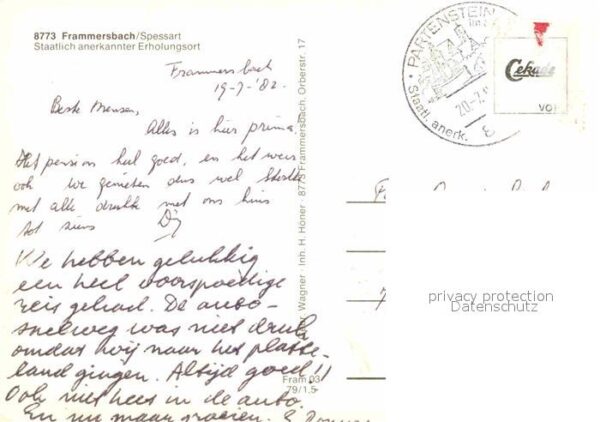 8773 Frammersbach/Spessart
Staatlich anerkannter Erholungsort
Frammersbach
19-7-'82
Beste Mensen,
Alles is hier prima.
Het pension heel goed, en het weer
ook. We genieten dus wel. Sterkte
met alle drukte met ons huis
tot ziens
We hebben gelukkig
een heel voorspoedige
reis gehad. De auto-
snelweg was niet druk
omdat wij naar het platte-
land gingen. Altijd goed!!
Ook niet hees in de auto.
En nu maar
Wagner Inh. H. Höner · 8773 Frammersbach, Orberstr. 17
Fram 03
79/1.5
PARTENSTEIN
Staatl. anerk.
20-7
8
Cekade
privacy protection
Datenschutz